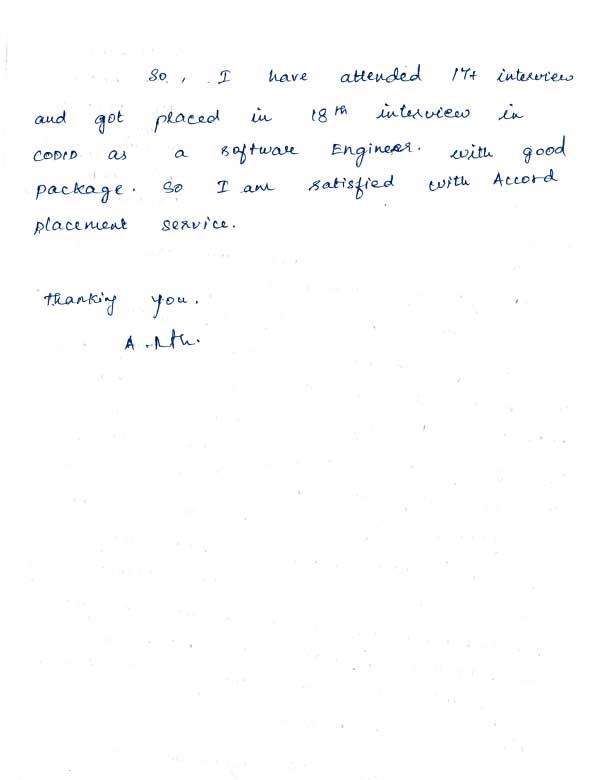 So, I have attended 17+ interview
and got placed in 18th interview in
CODID as a software Engineer. with good
package. So I am satisfied with Accord
placement service.
Thanking you.
A.